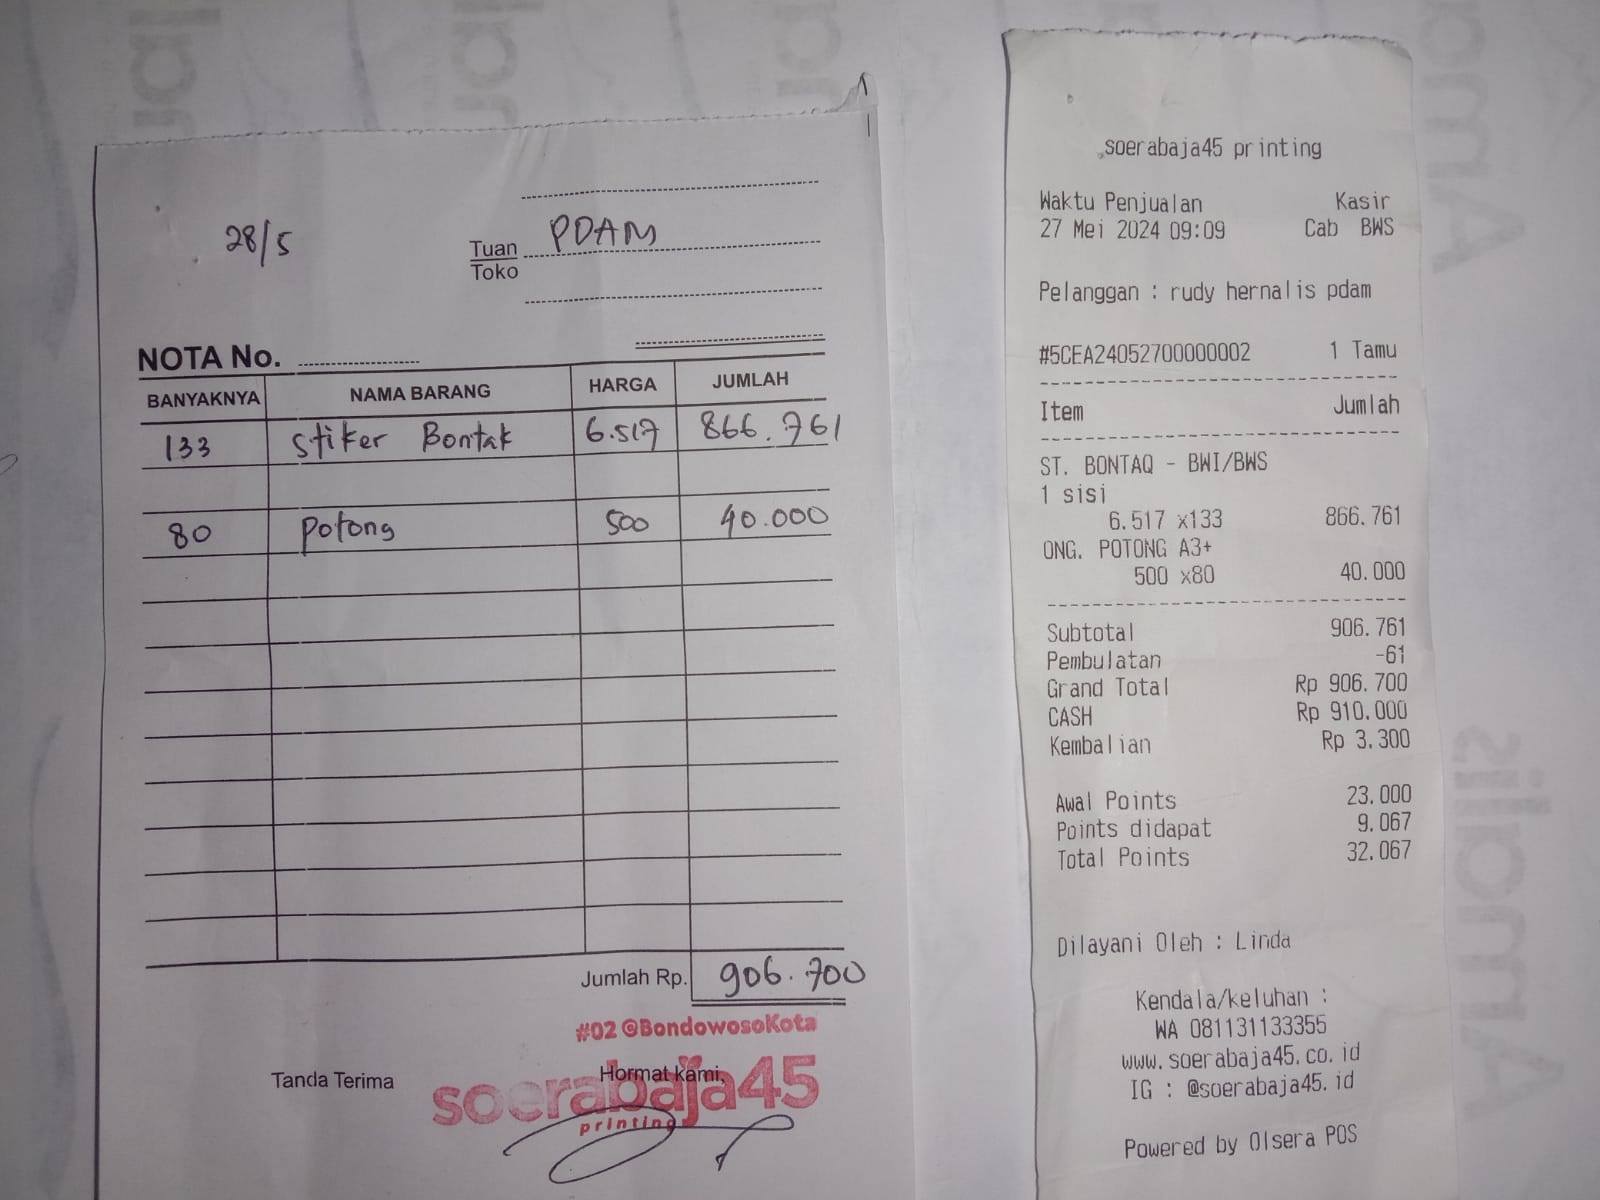 28/5
PDAM
Tuan
Toko
NOTA No.
BANYAKNYA NAMA BARANG HARGA JUMLAH
133 Stiker Bontak 6.517 866.761
80 Potong 500 40.000
Jumlah Rp. 906.700
#02 @BondowosoKota
Tanda Terima Hormat kami,
soerabaja45
printing
soerabaja45 printing
Waktu Penjualan Kasir
27 Mei 2024 09:09 Cab BWS
Pelanggan : rudy hernalis pdam
#5CEA24052700000002 1 Tamu
Item Jumlah
ST. BONTAQ - BWI/BWS
1 sisi
6.517 x133 866.761
ONG. POTONG A3+
500 x80 40.000
Subtotal 906.761
Pembulatan -61
Grand Total Rp 906.700
CASH Rp 910.000
Kembalian Rp 3.300
Awal Points 23.000
Points didapat 9.067
Total Points 32.067
Dilayani Oleh : Linda
Kendala/keluhan :
WA 081131133355
www.soerabaja45.co.id
IG : @soerabaja45.id
Powered by Olsera POS